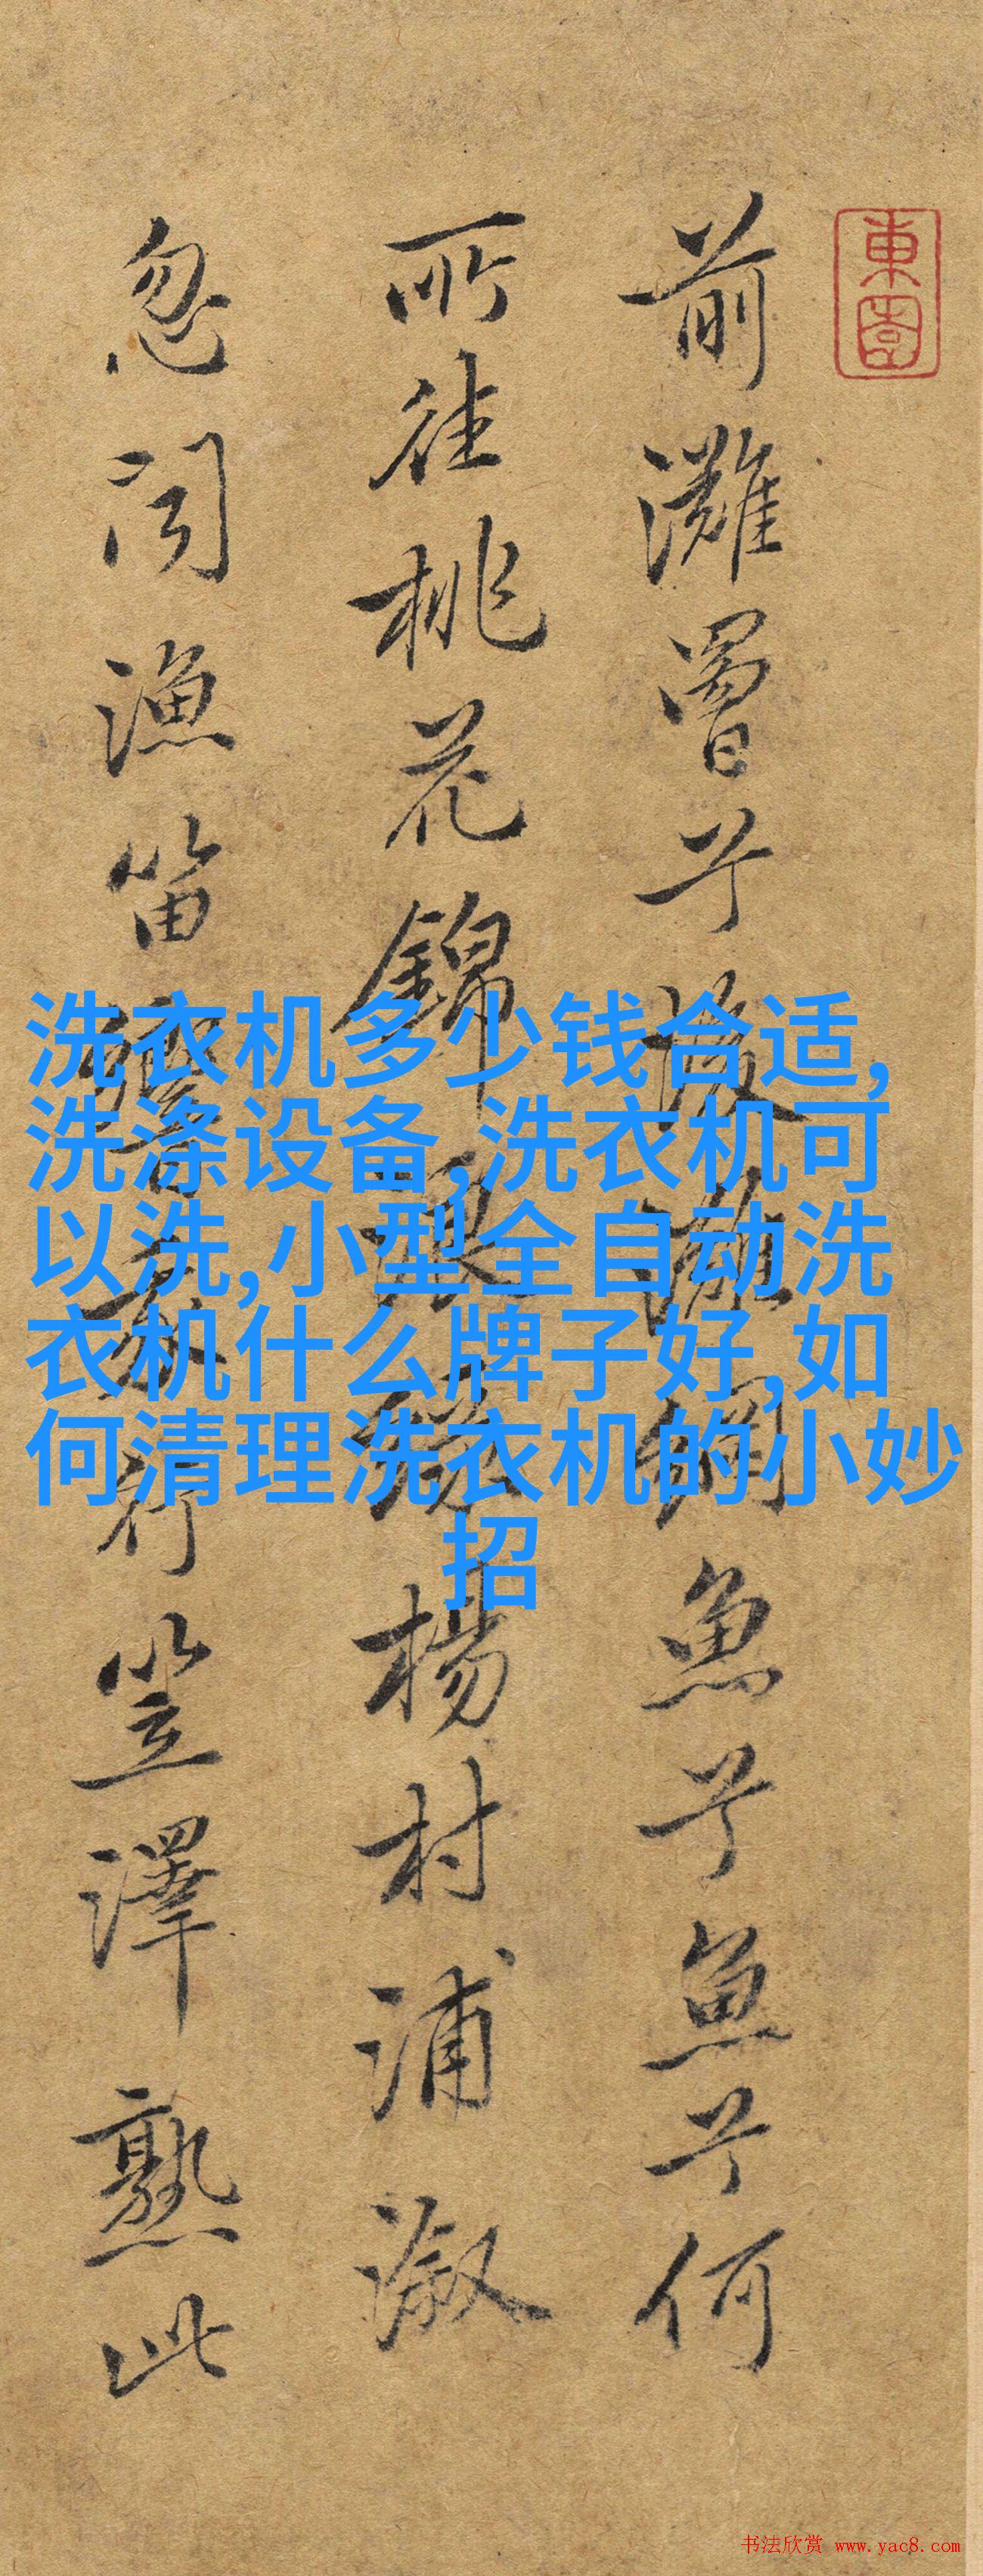 東園
前灘罾兮後灘網魚兮魚兮何
所往桃花錦浪綠楊村浦溆
忽聞漁笛響行笠澤熟此
洗衣机多少钱合适,
洗涤设备,洗衣机可
以洗,小型全自动洗
衣机什么牌子好,如
何清理洗衣机的小妙
招
书法欣赏 www.yac8.com